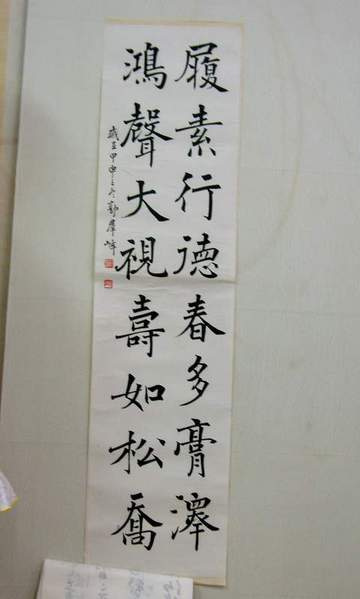 履素行德春多膏澤
鴻聲大視壽如松喬
歲至甲申之冬